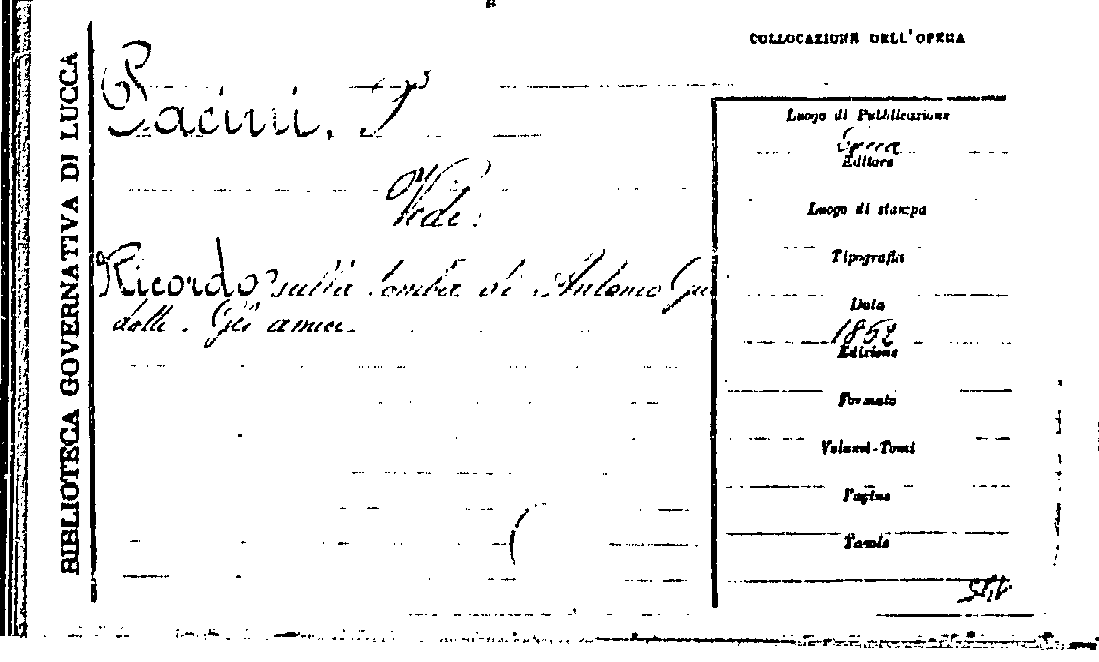 BIBLIOTECA GOVERNATIVA DI LUCCA
COLLOCAZIONE DELL'OPERA
Pacini, F
Vedi:
Ricordo sulla tomba di Antonio Gui
dotti. Gli amici
Luogo di Pubblicazione
Lucca
Editore
Luogo di stampa
Tipografia
Data
1852
Edizione
Formato
Volumi-Tomi
Pagine
Tavole